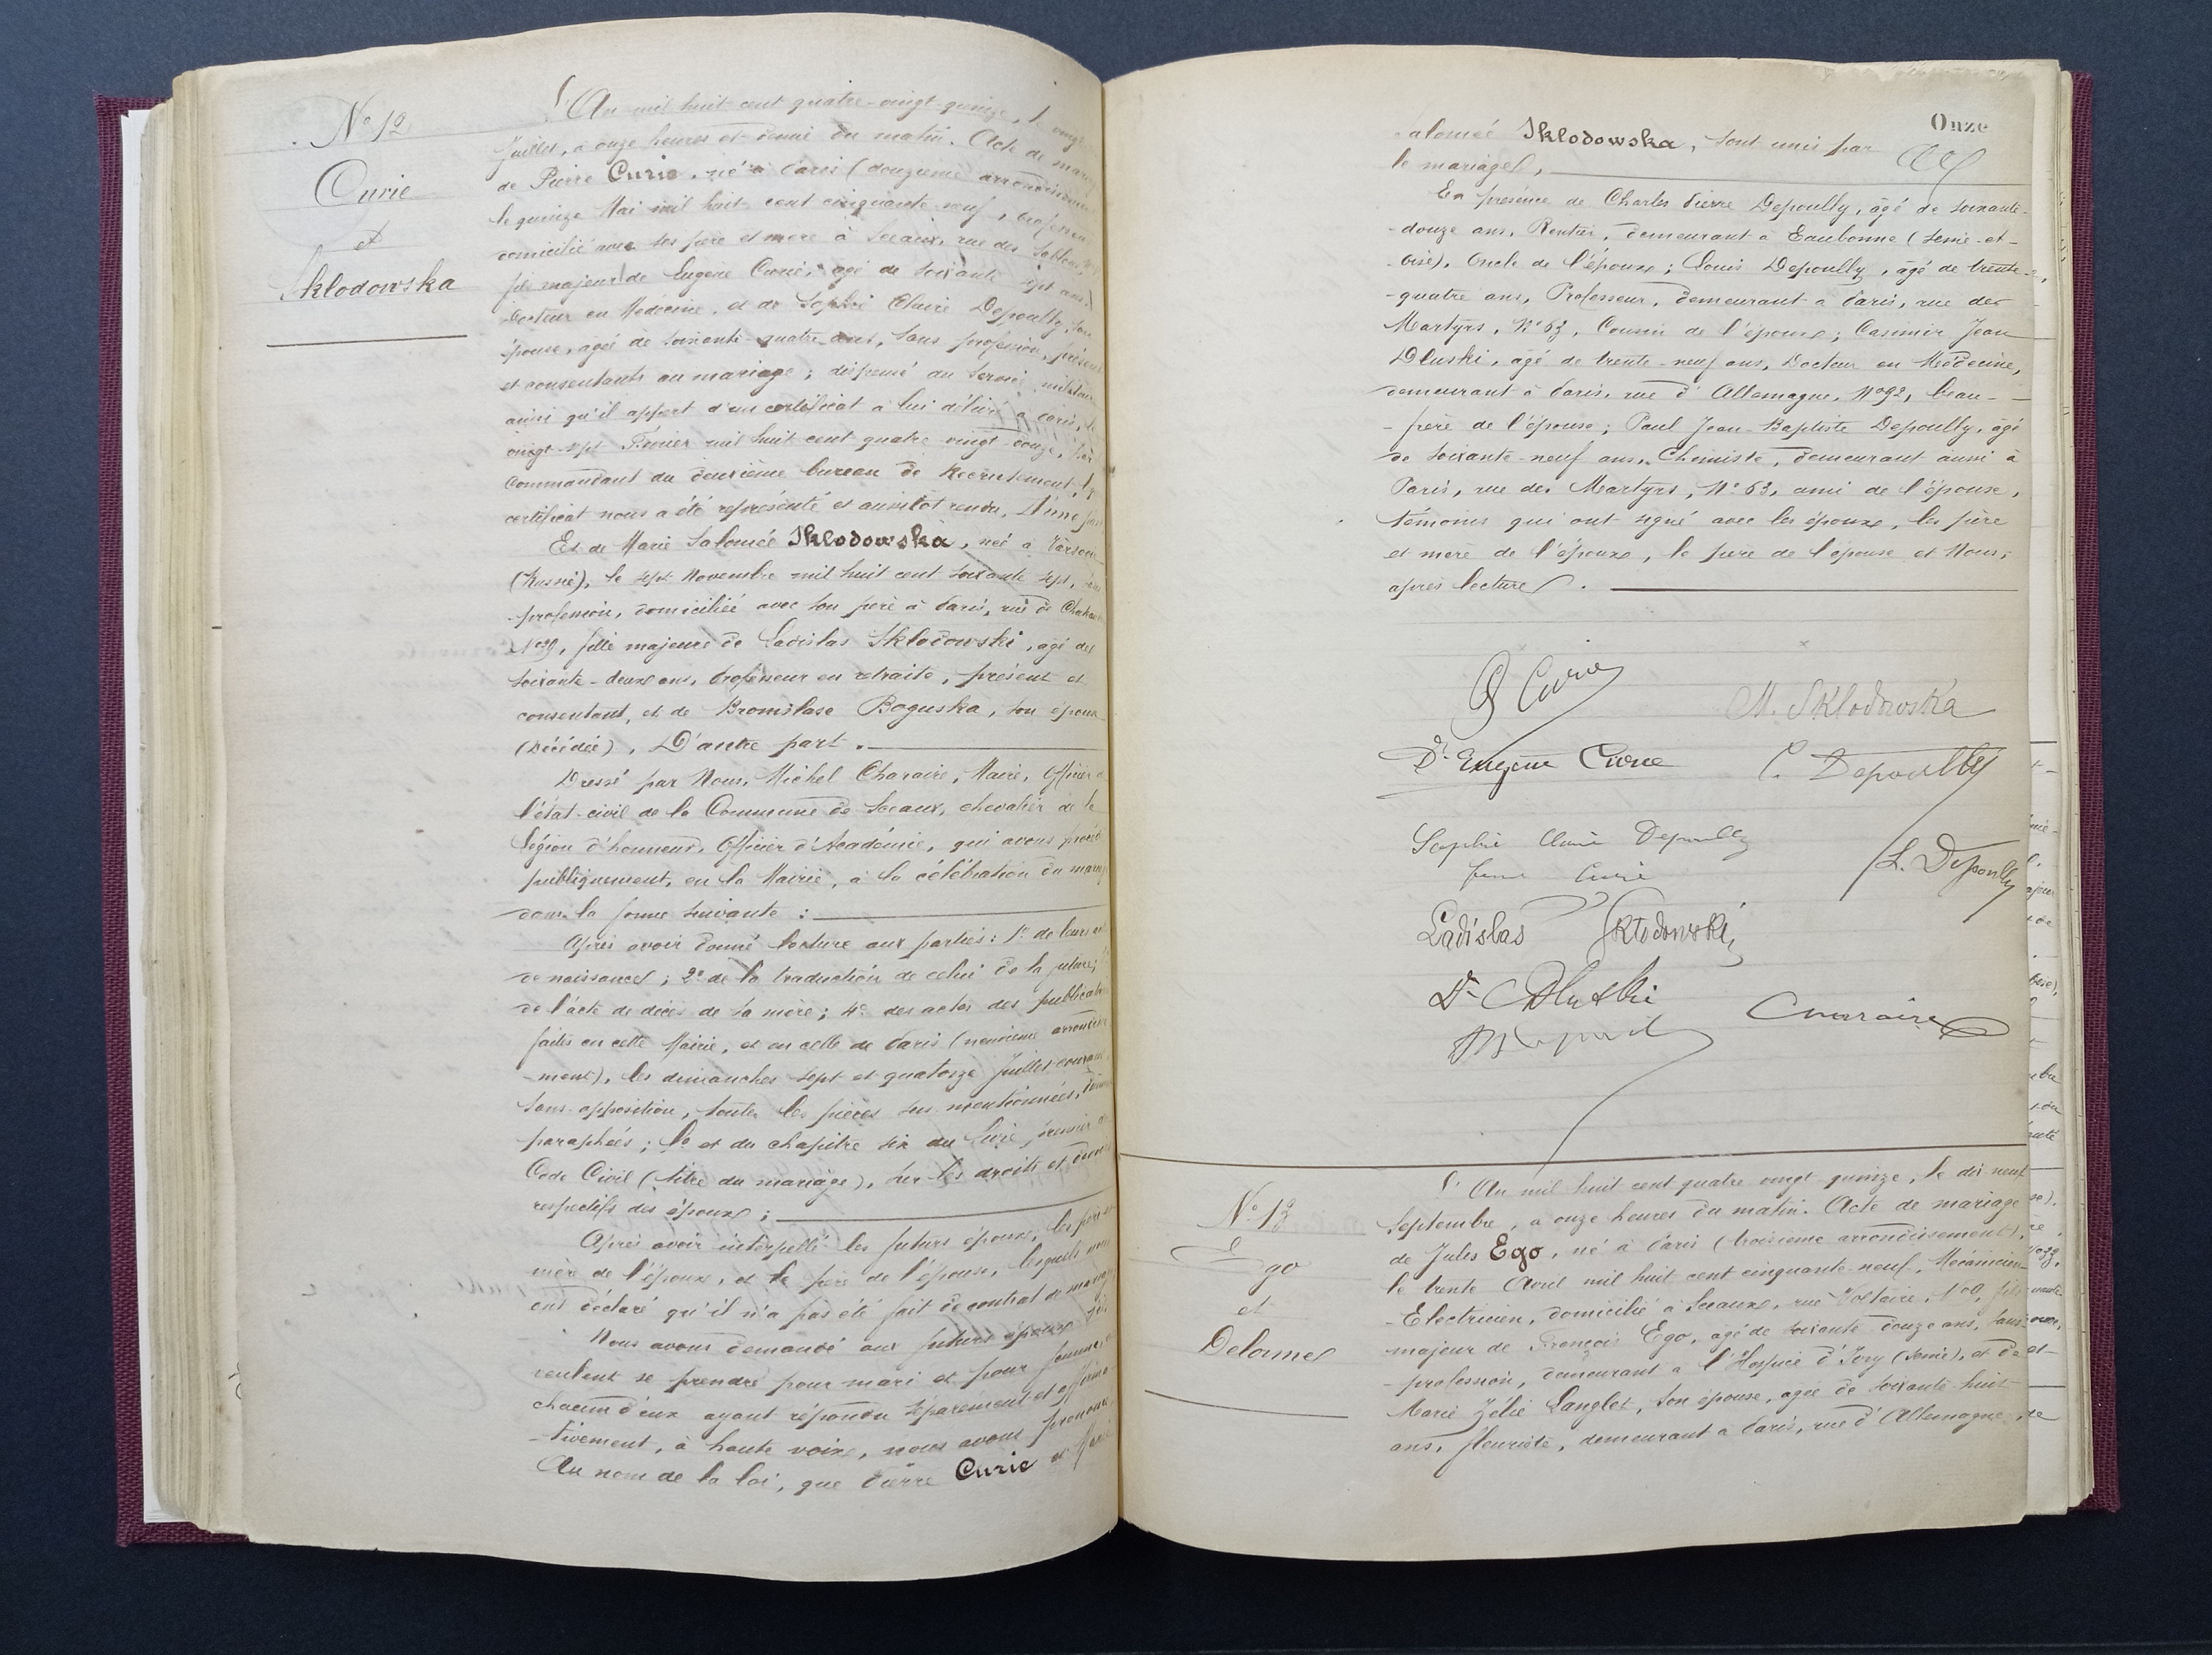 No 12
Curie
et
Sklodowska
L'An mil huit cent quatre-vingt-quinze, le vingt
Juillet, à onze heures et demi du matin. Acte de
de Pierre Curie, né à Paris (douzième
le quinze Mai mil huit cent cinquante-neuf,
domicilié avec ses père et mère à Sceaux, rue des Sablons,
fils majeur de Eugène Curie, agé de soixante sept ans,
Docteur en Médecine, et de Sophie Claire Depoully, son
épouse, agée de soixante-quatre ans, sans profession,
et consentants au mariage; dispensé du service
ainsi qu'il appert d'un certificat à lui délivré à Paris, le
vingt-sept Février mil huit cent quatre-vingt-douze,
Commandant du deuxième bureau de Recrutement,
certificat nous a été représenté et aussitôt rendu, D'une part
Et de Marie Salomée Sklodowska, née à
(Russie), le sept Novembre mil huit cent soixante sept,
profession, domiciliée avec son père à Paris, rue de
No 39, fille majeure de Ladislas Sklodowski, agé de
soixante-deux ans, Professeur en retraite, présent et
consentant, et de Bromislase Boguska, son
(Décédée), D'autre part.
Dressé par Nous, Michel Charaire, Maire, Officier
l'état-civil de la Commune de Sceaux, chevalier de la
Légion d'honneur, Officier d'Académie, qui avons
publiquement, en la Mairie, à la célébration du
dans la forme suivante :
Après avoir donné lecture aux parties: 1o de leurs
de naissance; 2o de la traduction de celui de la future;
de l'acte de décès de sa mère; 4o des actes des
faites en cette Mairie, et en celle de Paris (neuvième
-ment), les dimanches sept et quatorze Juillet
sans opposition, toutes les pièces sus mentionnées,
paraphées; et du chapitre six du livre premier
Code Civil (titre du mariage), sur les droits et
respectifs des époux;
Après avoir interpellé les futurs époux, les père et
mère de l'époux, et le père de l'épouse, lesquels nous
ont déclaré qu'il n'a pas été fait de contrat de
Nous avons demandé aux futurs époux
veulent se prendre pour mari et pour femme,
chacun d'eux ayant répondu séparément et
-tivement, à haute voix, nous avons
Au nom de la loi, que Pierre Curie et Marie
Onze
Salomée Sklodowska, sont unis par
le mariage,
En présence de Charles Pierre Depoully, âgé de soixante-
-douze ans, Rentier, demeurant à Eaubonne (Seine-et-
-oise), Oncle de l'époux; Louis Depoully, âgé de trente-
-quatre ans, Professeur, demeurant à Paris, rue des
Martyrs, No 63, Cousin de l'époux; Casimir Jean
Dluski, âgé de trente-neuf ans, Docteur en Médecine,
demeurant à Paris, rue d'Allemagne, No 92, beau-
-frère de l'épouse; Paul Jean-Baptiste Depoully, âgé
de soixante-neuf ans, Chimiste, demeurant aussi à
Paris, rue des Martyrs, No 63, ami de l'épouse,
témoins qui ont signé avec les époux, les père
et mère de l'époux, le père de l'épouse et Nous,
après lecture.
P Curie
M. Sklodowska
Dr Eugène Curie
C. Depoully
Sophie Claire Depoully
femme Curie
L. Depoully
Ladislas Skłodowski
Dr Dluski
Charaire
L'An mil huit cent quatre vingt quinze, le dix neuf
Septembre, à onze heures du matin. Acte de mariage
No 13
Ego
et
Delorme
de Jules Ego, né à Paris (troisième arrondissement),
le trente Avril mil huit cent cinquante-neuf, Mécanicien-
-Electricien, domicilié à Sceaux, rue Voltaire, fils
majeur de François Ego, agé de soixante douze ans, sans
-profession, demeurant à l'Hospice d'Ivry (Seine), et de
Marie Zélie Langlet, son épouse, agée de soixante-huit
ans, fleuriste, demeurant à Paris, rue d'Allemagne,